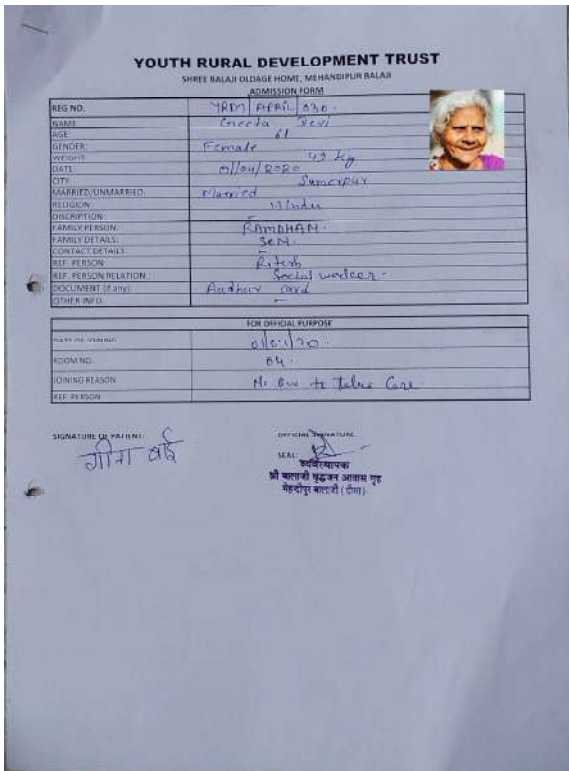 YOUTH RURAL DEVELOPMENT TRUST
SHREE BALAJI OLDAGE HOME, MEHANDIPUR BALAJI
ADMISSION FORM
REG NO. YRDT APRIL 030.
NAME Geeta Devi
AGE 61
GENDER: Female
WEIGHT: 49 kg
DATE: 01/04/2020
CITY: Sumerpur
MARRIED/UNMARRIED: Married
RELIGION: Hindu
DISCRIPTION: -
FAMILY PERSON: RAMDHAN.
FAMILY DETAILS: SON.
CONTACT DETAILS -
REF. PERSON: Ritesh
REF. PERSON RELATION: Social worker.
DOCUMENT (if any) Aadhar card
OTHER INFO. -
FOR OFFICIAL PURPOSE
DATE OF JOINING
ROOM NO. 04.
JOINING REASON No one to take Care.
REF. PERSON
SIGNATURE OF PATIENT:
OFFICIAL SIGNATURE
गीता बाई
SEAL:
व्यवस्थापक
श्री बालाजी वृद्धजन आवास गृह
मेहंदीपुर बालाजी (दौसा)